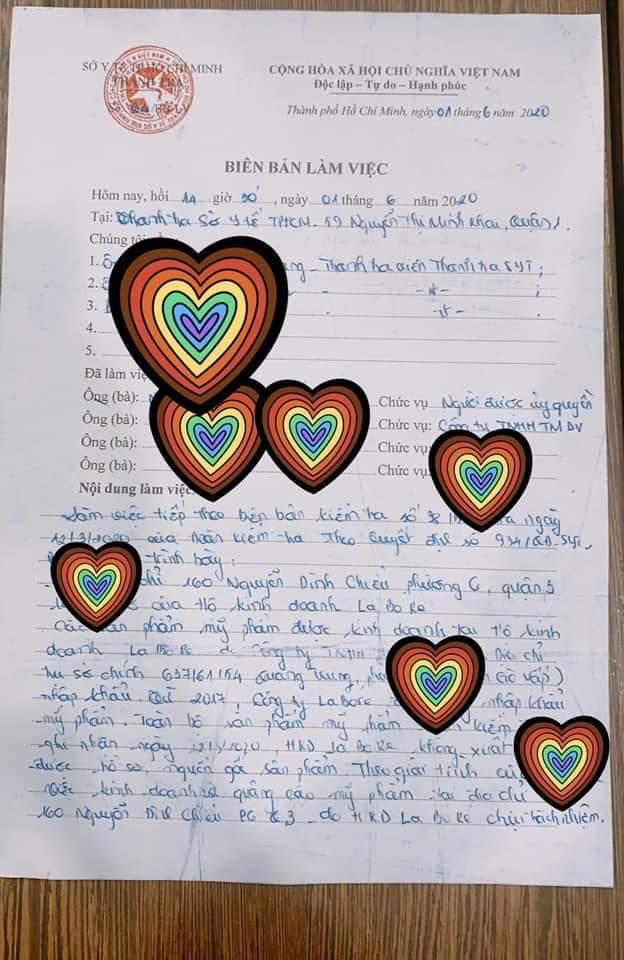 SỞ Y TẾ TP HỒ CHÍ MINH
THANH TRA
CỘNG HÒA XÃ HỘI CHỦ NGHĨA VIỆT NAM
Độc lập – Tự do – Hạnh phúc
Thành phố Hồ Chí Minh, ngày 01 tháng 6 năm 2020
BIÊN BẢN LÀM VIỆC
Hôm nay, hồi 14 giờ 30', ngày 01 tháng 6 năm 2020
Tại: Thanh tra Sở Y tế TPHCM - 59 Nguyễn Thị Minh Khai, Quận 1.
Chúng tôi
1. Thanh tra viên Thanh tra SYT;
2.
4.
5.
Đã làm vi
Ông (bà): Chức vụ Người được ủy quyền
Ông (bà): Chức vụ: Công ty TNHH TM DV
Ông (bà): Chức vụ:
Ông (bà): Chức vụ
Nội dung làm việc:
Làm việc tiếp theo biên bản kiểm tra số ngày
12/3/2020 của Đoàn kiểm tra Theo Quyết định số 934/QĐ-SYT.
trình bày:
chỉ 160 Nguyễn Đình Chiểu phường 6, quận 3
của Hộ kinh doanh La Bo Re
Các sản phẩm mỹ phẩm được kinh doanh tại Hộ kinh
doanh La Bo Re do Công ty TNHH Địa chỉ
trụ sở chính 637/61/154 Quang Trung, Gò Vấp)
nhập khẩu. Từ 2017, Công ty LaBore nhập khẩu
mỹ phẩm. Toàn bộ sản phẩm mỹ phẩm kiểm
ghi nhận ngày 12/3/2020, HKD La Bo Re không xuất
được hồ sơ, nguồn gốc sản phẩm. Theo giải trình của
việc kinh doanh và quảng cáo mỹ phẩm tại địa chỉ
160 Nguyễn Đình Chiểu P6 Q.3 do HKD La Bo Re chịu trách nhiệm.